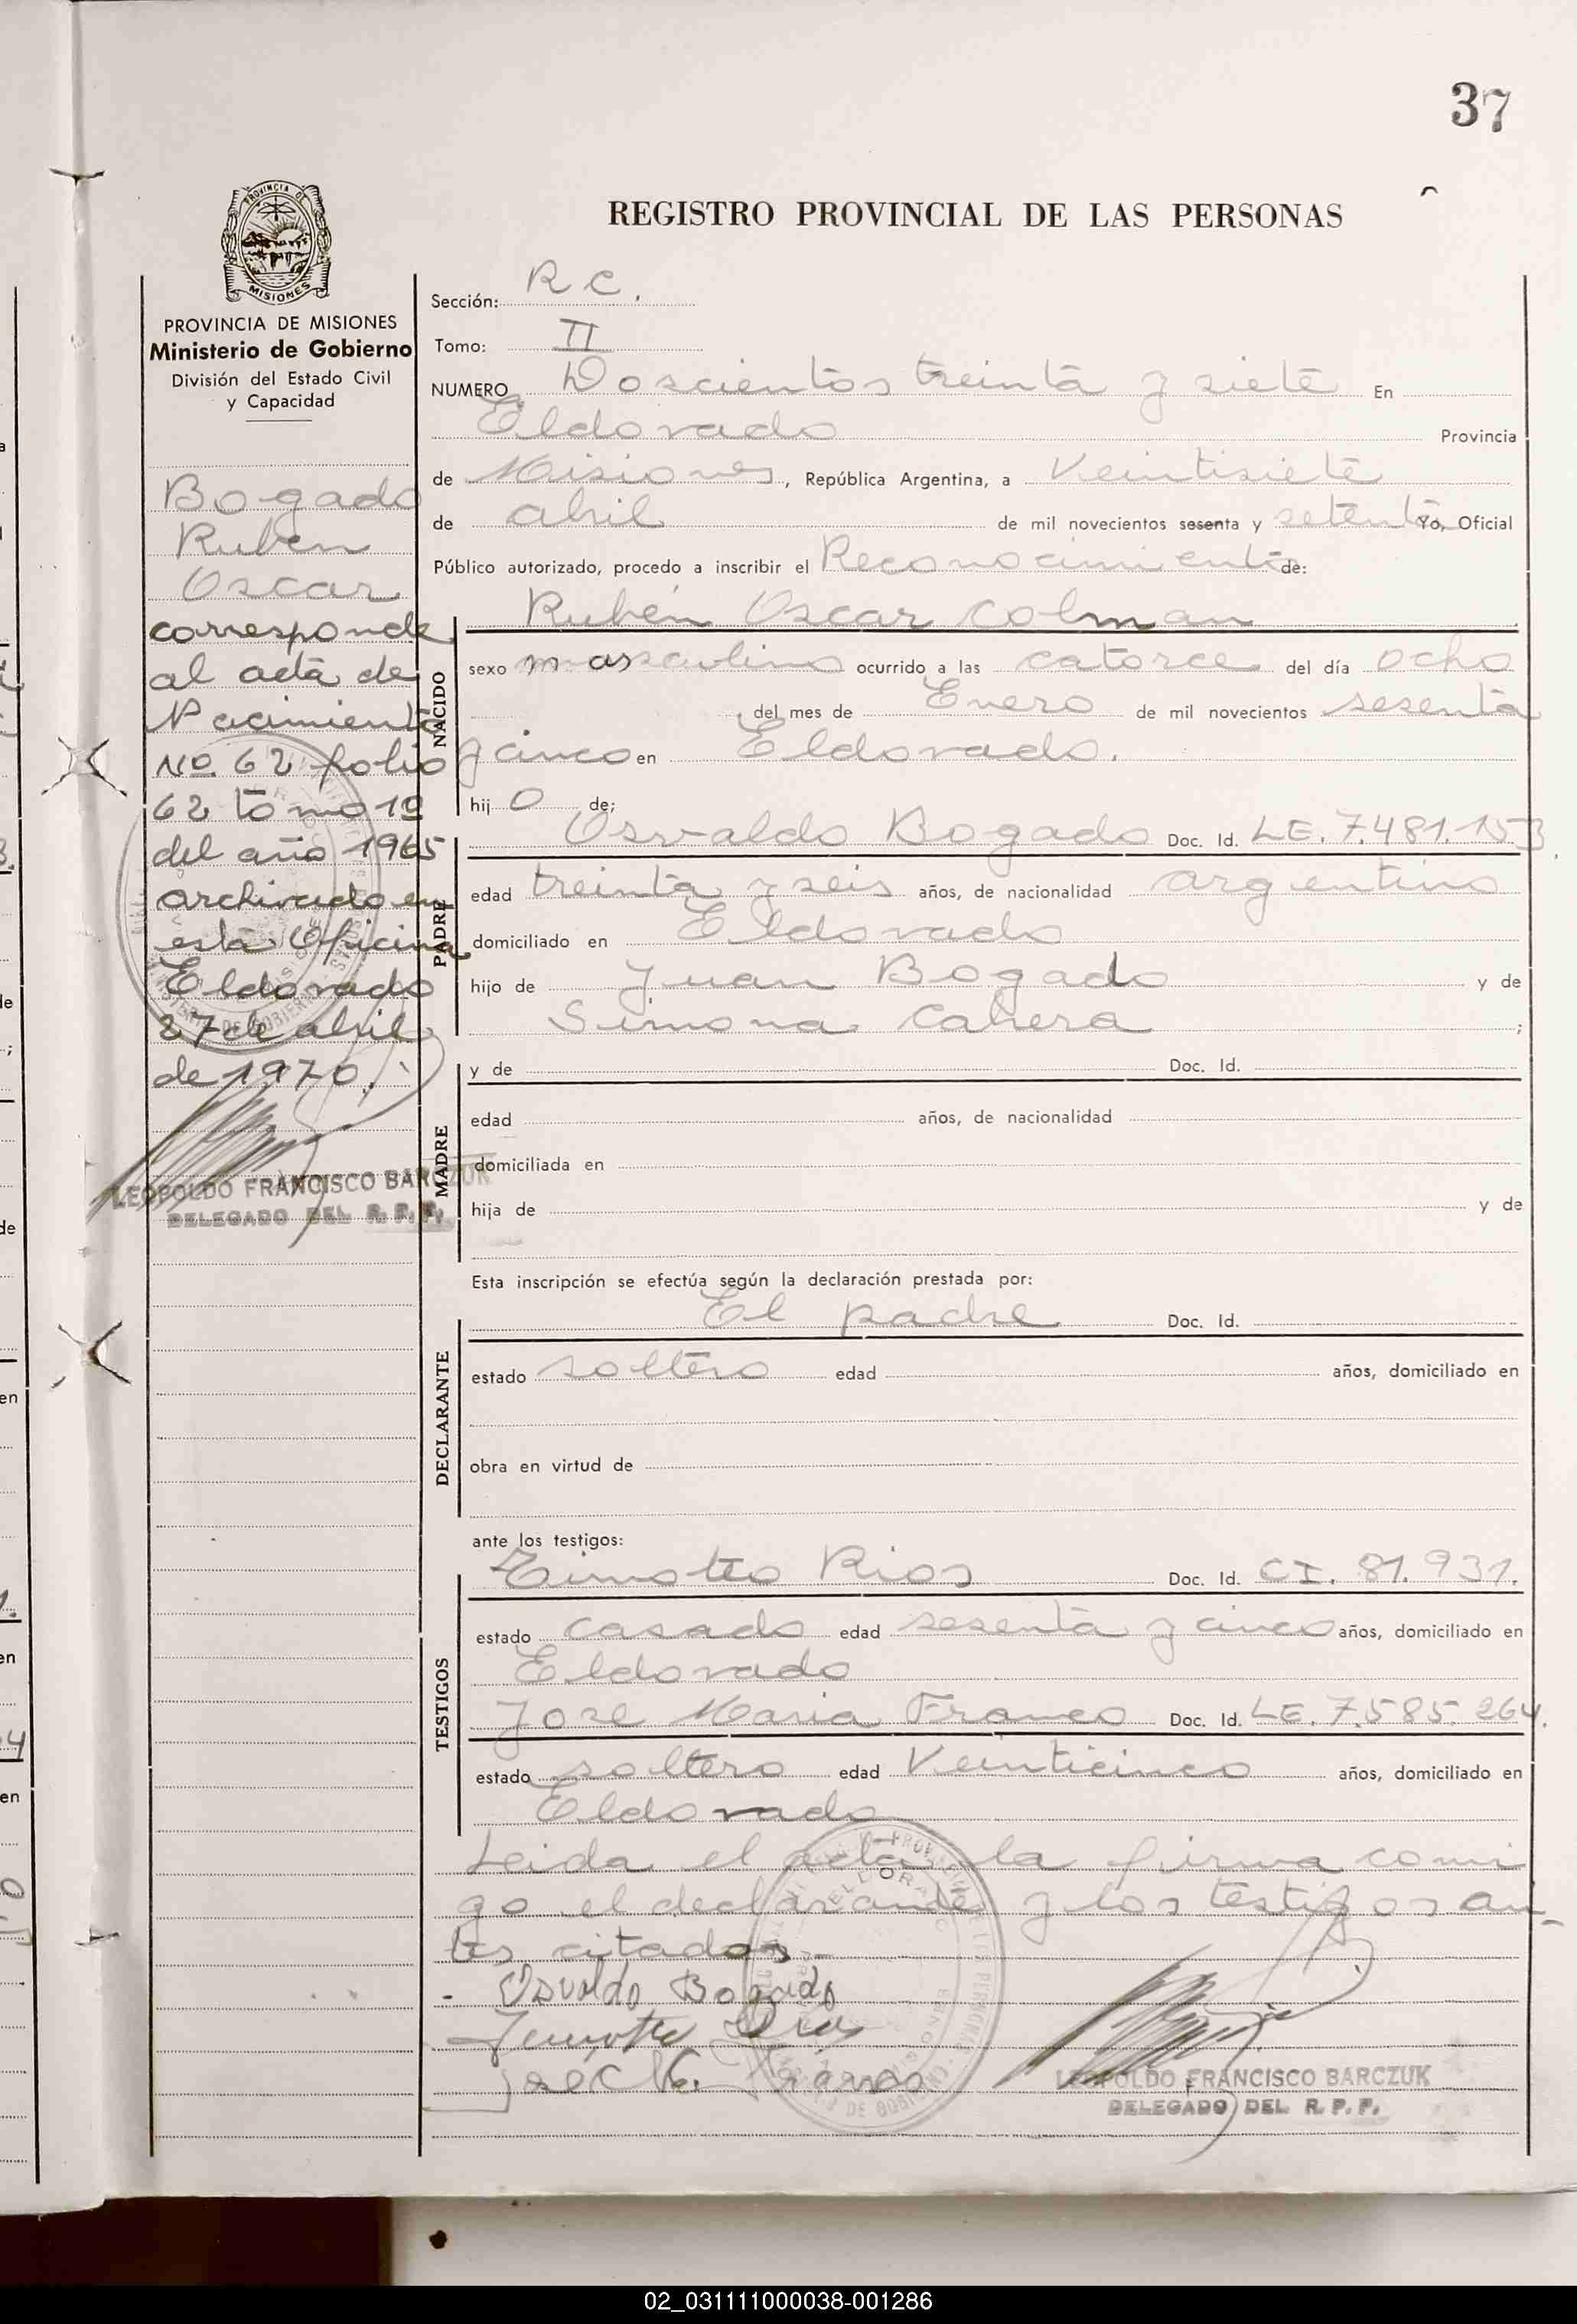 37
REGISTRO PROVINCIAL DE LAS PERSONAS
PROVINCIA DE MISIONES
Ministerio de Gobierno
División del Estado Civil
y Capacidad
Bogado
Ruben
Oscar
corresponde
al acta de
Nacimiento
Nº 62 folio
62 tomo 1º
del año 1965
archivado en
esta Oficina
Eldorado
27 de abril
de 1970.
LEOPOLDO FRANCISCO BARCZUK
DELEGADO DEL R. P. P.
Sección: R C.
Tomo: II
NUMERO Doscientos treinta y siete En
Eldorado Provincia
de Misiones, República Argentina, a Veintisiete
de abril de mil novecientos sesenta y setenta Yo, Oficial
Público autorizado, procedo a inscribir el Reconocimiento de:
Rubén Oscar Colman
NACIDO
sexo masculino ocurrido a las catorce del día ocho
del mes de Enero de mil novecientos sesenta
y cinco en Eldorado.
hijo de:
PADRE
Osvaldo Bogado Doc. Id. LE. 7.481.153.
edad treinta y seis años, de nacionalidad argentino
domiciliado en Eldorado
hijo de Juan Bogado y de
Simona Cabrera;
MADRE
y de Doc. Id.
edad años, de nacionalidad
domiciliada en
hija de y de
Esta inscripción se efectúa según la declaración prestada por:
DECLARANTE
El padre Doc. Id.
estado soltero edad años, domiciliado en
obra en virtud de
ante los testigos:
TESTIGOS
Timoteo Rios Doc. Id. CI. 81.931.
estado casado edad sesenta y cinco años, domiciliado en
Eldorado
Jose Maria Franco Doc. Id. LE. 7.585.264.
estado soltero edad Veinticinco años, domiciliado en
Eldorado
Leida el acta la firma comi
go el declarante y los testigos an-
tes citados.-
Osvaldo Bogado
LEOPOLDO FRANCISCO BARCZUK
DELEGADO DEL R. P. P.
02_031111000038-001286